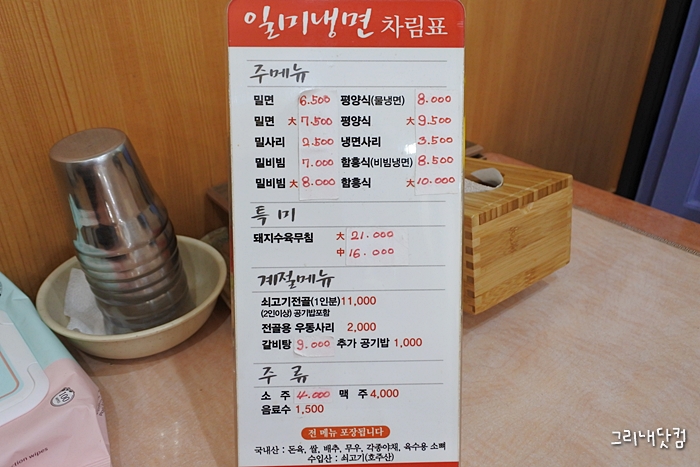 일미냉면 차림표
주메뉴
밀면 6.500 평양식(물냉면) 8.000
밀면 大 7.500 평양식 大 9.500
밀사리 2.500 냉면사리 3.500
밀비빔 7.000 함흥식(비빔냉면) 8.500
밀비빔 大 8.000 함흥식 大 10.000
특 미
돼지수육무침 大 21.000
中 16.000
계절메뉴
쇠고기전골(1인분) 11,000
(2인이상) 공기밥포함
전골용 우동사리 2,000
갈비탕 9.000 추가 공기밥 1,000
주 류
소 주 4.000 맥 주 4,000
음료수 1,500
전 메뉴 포장됩니다
국내산 : 돈육, 쌀, 배추, 무우, 각종야채, 육수용 소뼈
수입산 : 쇠고기(호주산)
100
ction wipes
그리내닷컴